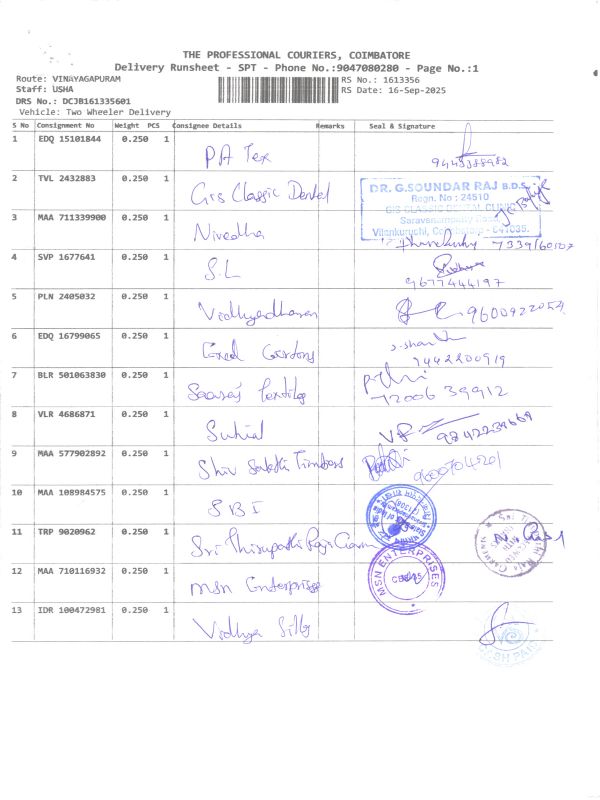 THE PROFESSIONAL COURIERS, COIMBATORE
Delivery Runsheet - SPT - Phone No.:9047080280 - Page No.:1
Route: VINAYAGAPURAM
Staff: USHA
DRS No.: DCJB161335601
Vehicle: Two Wheeler Delivery
RS No.: 1613356
RS Date: 16-Sep-2025
S No Consignment No Weight PCS Consignee Details Remarks Seal & Signature
1 EDQ 15101844 0.250 1 PA Tex
2 TVL 2432883 0.250 1 Gis Classic Dental
DR. G.SOUNDAR RAJ B.D.S.
Regn. No : 24510
GIS CLASSIC DENTAL CLINIC
Saravanampatty Road,
Vilankuruchi, Coimbatore - 641035.
3 MAA 711339900 0.250 1 Nivedha
4 SVP 1677641 0.250 1 S.L
9677444197
5 PLN 2405032 0.250 1 Vidhyadharan 9600922054
6 EDQ 16799065 0.250 1
9442200919
7 BLR 501063830 0.250 1
72006 39912
8 VLR 4686871 0.250 1 9842239669
9 MAA 577902892 0.250 1 Shiv Sakthi Timbers 9600704201
10 MAA 108984575 0.250 1 SBI
11 TRP 9020962 0.250 1 Sri
12 MAA 710116932 0.250 1 MSN Enterprises
MSN ENTERPRISES
13 IDR 100472981 0.250 1 Vidhya Silks